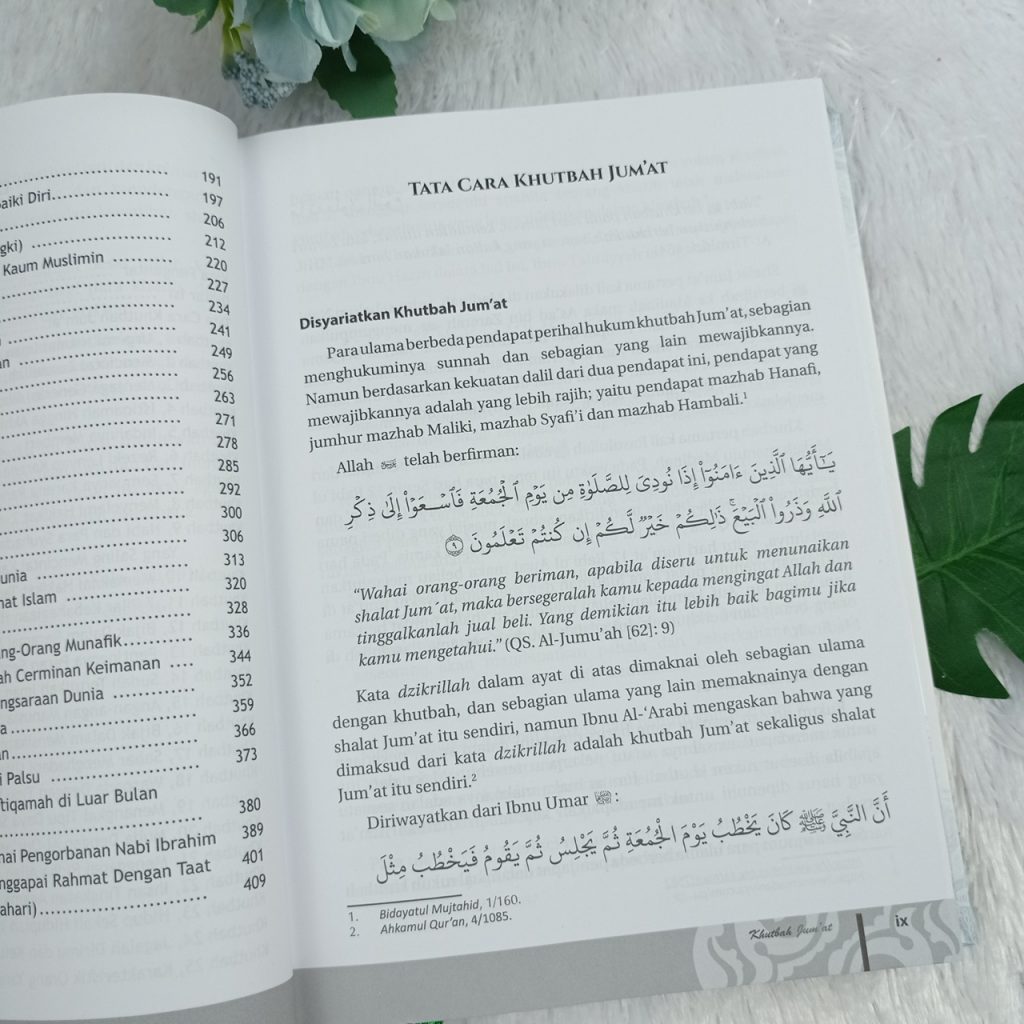 191
aiki Diri 197
206
gki) 212
Kaum Muslimin 220
227
234
241
an 249
256
263
271
278
285
292
300
306
unia 313
mat Islam 320
328
ng-Orang Munafik 336
ah Cerminan Keimanan 344
ngsaraan Dunia 352
a 359
an 366
i Palsu 373
tiqamah di Luar Bulan
380
nai Pengorbanan Nabi Ibrahim 389
nggapai Rahmat Dengan Taat 401
ahari) 409
TATA CARA KHUTBAH JUM’AT
Disyariatkan Khutbah Jum’at
Para ulama berbeda pendapat perihal hukum khutbah Jum’at, sebagian
menghukuminya sunnah dan sebagian yang lain mewajibkannya.
Namun berdasarkan kekuatan dalil dari dua pendapat ini, pendapat yang
mewajibkannya adalah yang lebih rajih; yaitu pendapat mazhab Hanafi,
jumhur mazhab Maliki, mazhab Syafi’i dan mazhab Hambali.¹
Allah telah berfirman:
يَـٰٓأَيُّهَا ٱلَّذِينَ ءَامَنُوٓا۟ إِذَا نُودِىَ لِلصَّلَوٰةِ مِن يَوْمِ ٱلْجُمُعَةِ فَٱسْعَوْا۟ إِلَىٰ ذِكْرِ
ٱللَّهِ وَذَرُوا۟ ٱلْبَيْعَ ۚ ذَٰلِكُمْ خَيْرٌ لَّكُمْ إِن كُنتُمْ تَعْلَمُونَ ٩
“Wahai orang-orang beriman, apabila diseru untuk menunaikan
shalat Jum´at, maka bersegeralah kamu kepada mengingat Allah dan
tinggalkanlah jual beli. Yang demikian itu lebih baik bagimu jika
kamu mengetahui.” (QS. Al-Jumu’ah [62]: 9)
Kata dzikrillah dalam ayat di atas dimaknai oleh sebagian ulama
dengan khutbah, dan sebagian ulama yang lain memaknainya dengan
shalat Jum’at itu sendiri, namun Ibnu Al-‘Arabi mengaskan bahwa yang
dimaksud dari kata dzikrillah adalah khutbah Jum’at sekaligus shalat
Jum’at itu sendiri.²
Diriwayatkan dari Ibnu Umar :
أَنَّ النَّبِيَّ ﷺ كَانَ يَخْطُبُ يَوْمَ الْجُمُعَةِ ثُمَّ يَجْلِسُ ثُمَّ يَقُومُ فَيَخْطُبُ مِثْلَ
1. Bidayatul Mujtahid, 1/160.
2. Ahkamul Qur’an, 4/1085.
Khutbah Jum’at ix